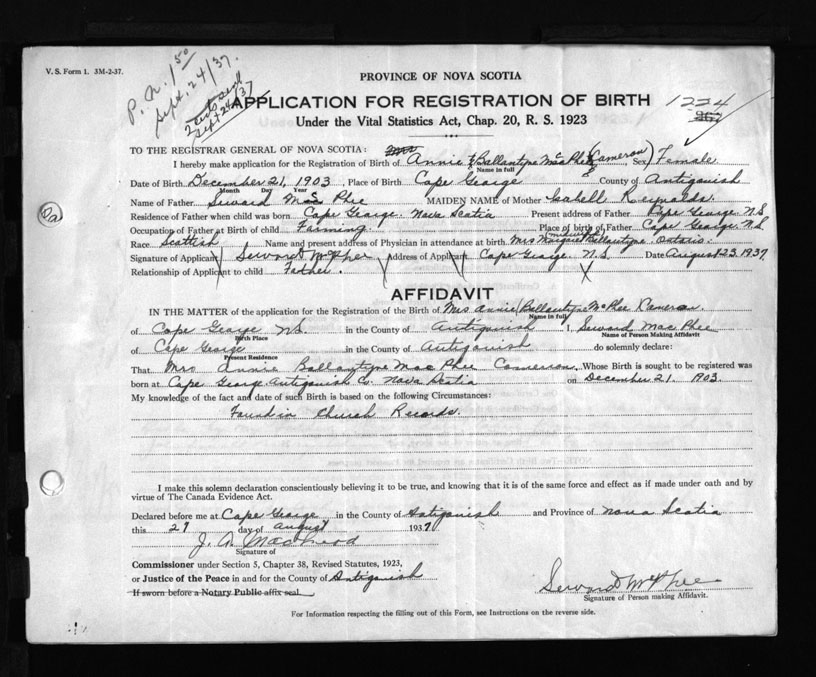 V. S. Form 1. 3M-2-37.
P. N. 1 50
Sept. 24/37.
Sept 24/37
PROVINCE OF NOVA SCOTIA
APPLICATION FOR REGISTRATION OF BIRTH
1224
Under the Vital Statistics Act, Chap. 20, R. S. 1923
TO THE REGISTRAR GENERAL OF NOVA SCOTIA:
I hereby make application for the Registration of Birth of Annie Ballantyne MacPhee (Cameron), Sex Female
Name in full
Date of Birth December 21, 1903, Place of Birth Cape George County of Antigonish
Month Day Year
Name of Father Seward MacPhee MAIDEN NAME of Mother Isabell Reynolds.
Residence of Father when child was born Cape George. Nova Scotia Present address of Father Cape George N.S.
Occupation of Father at Birth of child Farming. Place of birth of Father Cape George. N.S.
Race Scottish Name and present address of Physician in attendance at birth Mrs Margaret Ballantyne. Ontario.
Signature of Applicant Seward McPhee Address of Applicant Cape George. N.S. Date August 23. 1937.
Relationship of Applicant to child Father.
AFFIDAVIT
IN THE MATTER of the application for the Registration of the Birth of Mrs Annie Ballantyne McPhee Kameron.
Name in full
of Cape George N.S. in the County of Antigonish I, Seward MacPhee
Birth Place Name of Person Making Affidavit
of Cape George in the County of Antigonish do solemnly declare:
Present Residence
That Mrs Annie Ballantyne MacPhee Cameron. Whose Birth is sought to be registered was
born at Cape George Antigonish Co. Nova Scotia on December 21. 1903.
My knowledge of the fact and date of such Birth is based on the following Circumstances:
Found in Church Records.
I make this solemn declaration conscientiously believing it to be true, and knowing that it is of the same force and effect as if made under oath and by
virtue of The Canada Evidence Act.
Declared before me at Cape George in the County of Antigonish and Province of Nova Scotia
this 27 day of August 1937.
J. A. MacLeod
Signature of
Commissioner under Section 5, Chapter 38, Revised Statutes, 1923,
or Justice of the Peace in and for the County of Antigonish
If sworn before a Notary Public affix seal.
Seward McPhee
Signature of Person making Affidavit.
For Information respecting the filling out of this Form, see Instructions on the reverse side.